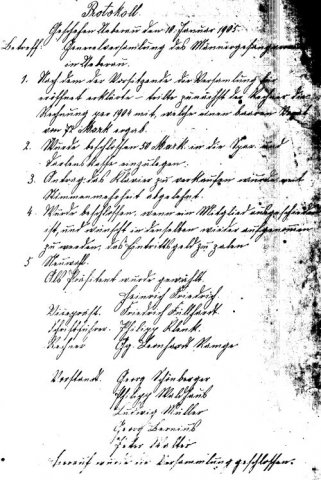 Protokoll.
Geschehen Ueberau den 10 Januar 1905.
Betreff: Generalversamlung des Männergesangverein
in Ueberau.
1. Nachdem der Vorsitzende die Versamlung für
eröffnet erklärte, teilte zunächst der Rechner die
Rechnung per 1904 mit, welche einen baaren
von 75 Mark ergab.
2. Wurde beschlossen 50 Mark in die Spar und
Vorlenskasse einzulegen.
3. Antrag das Klavier zu verkaufen wurde mit
Stimmenmehrheit abgelehnt.
4. Wurde beschlossen, wenn ein Mitglied ausgeschieden
ist, und wünscht in denselben wieder aufgenommen
zu werden, das Eintrittsgeld zu zalen
5 Neuwahl.
Als Präsitent wurde gewählt.
Heinrich Friedrich
Vicepräst. Friedrich
Schriftführer. Philipp Klenk.
Rechner Gg. Bernhardt Ramge
Vorstandt. Georg Schönberger
Philipp Waldhaus
Ludwig Müller
Georg
Peter
Hierauf wurde die Versammlung geschlossen.